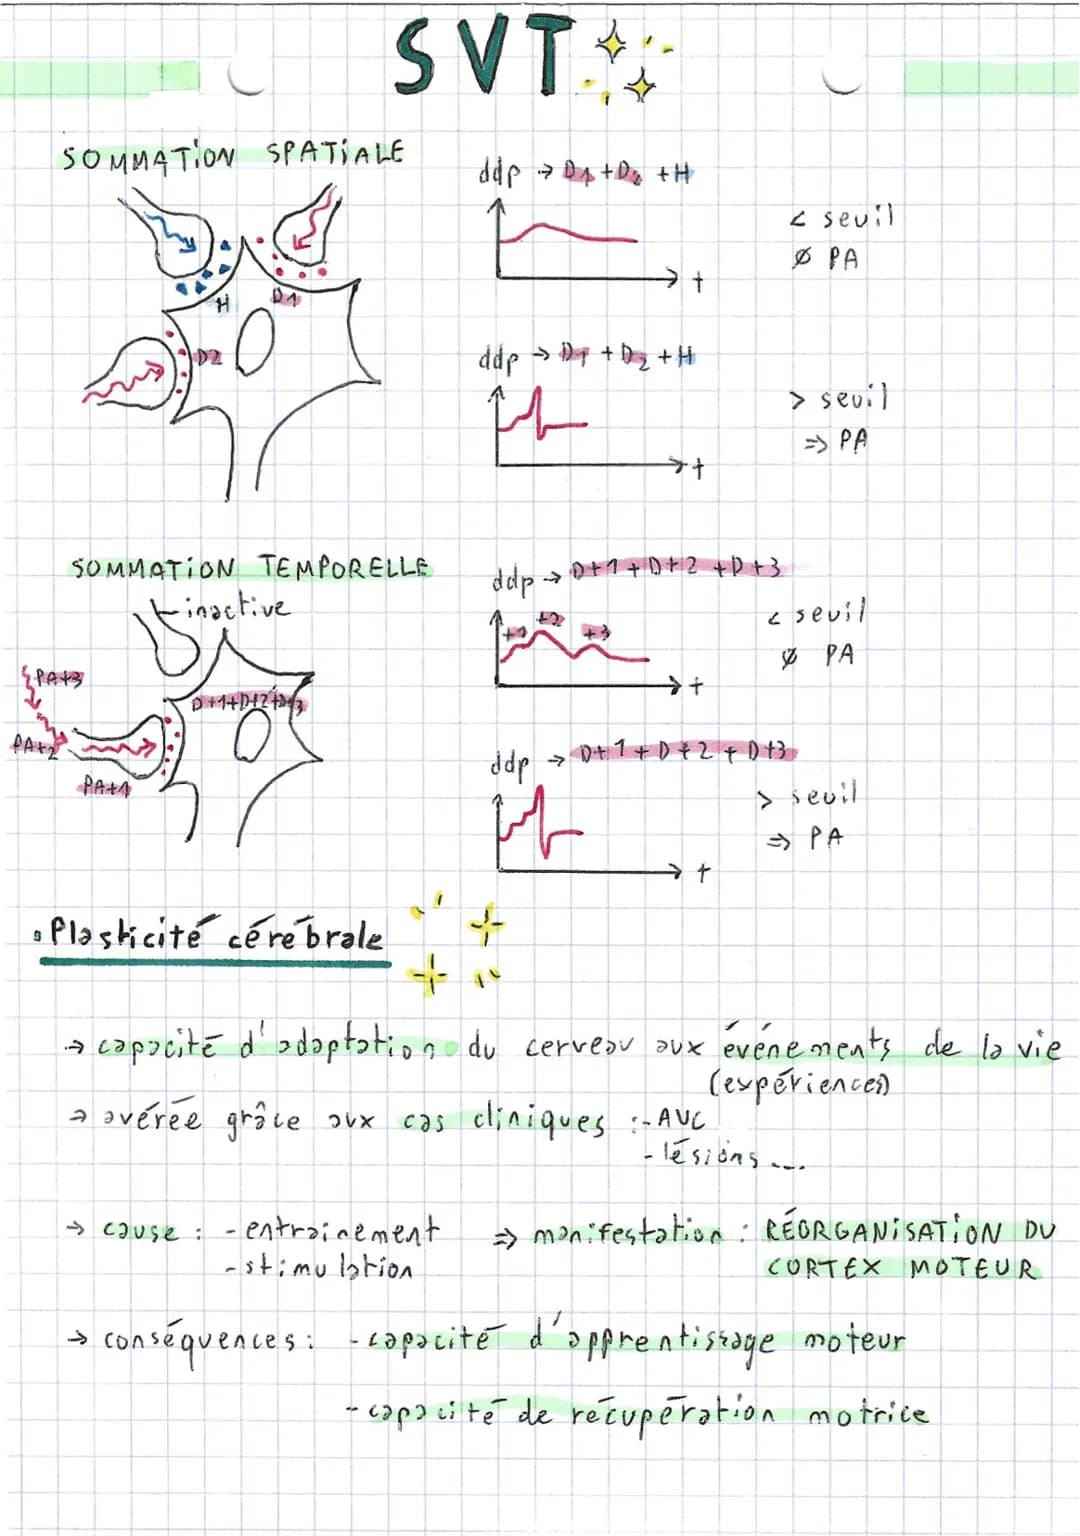 SVT
SOMMATION SPATIALE
ddp → D1 + D2 + H
< seuil
Ø PA
t
H
D1
D2
ddp → D1 + D2 + H
> seuil
⇒ PA
t
SOMMATION TEMPORELLE
inactive
ddp → Dt1 + Dt2 + Dt3
t1
t2
t3
< seuil
Ø PA
t
PAt3
Dt1+Dt2+Dt3
PAt2
PAt1
ddp → Dt1 + Dt2 + Dt3
> seuil
⇒ PA
t
• Plasticité cérébrale
→ capacité d'adaptation du cerveau aux événements de la vie
(expériences)
→ avérée grâce aux cas cliniques : - AVC
- lésions ...
→ cause : - entrainement ⇒ manifestation : RÉORGANISATION DU
- stimulation CORTEX MOTEUR
→ conséquences : - capacité d'apprentissage moteur
- capacité de récupération motrice